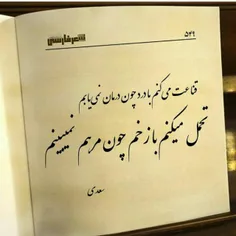 ۵۴۹
شعر فارسی
قناعت می‌کنم با درد چون درمان نمی‌یابم
تحمل میکنم با زخم چون مرهم نمیبینم
سعدی